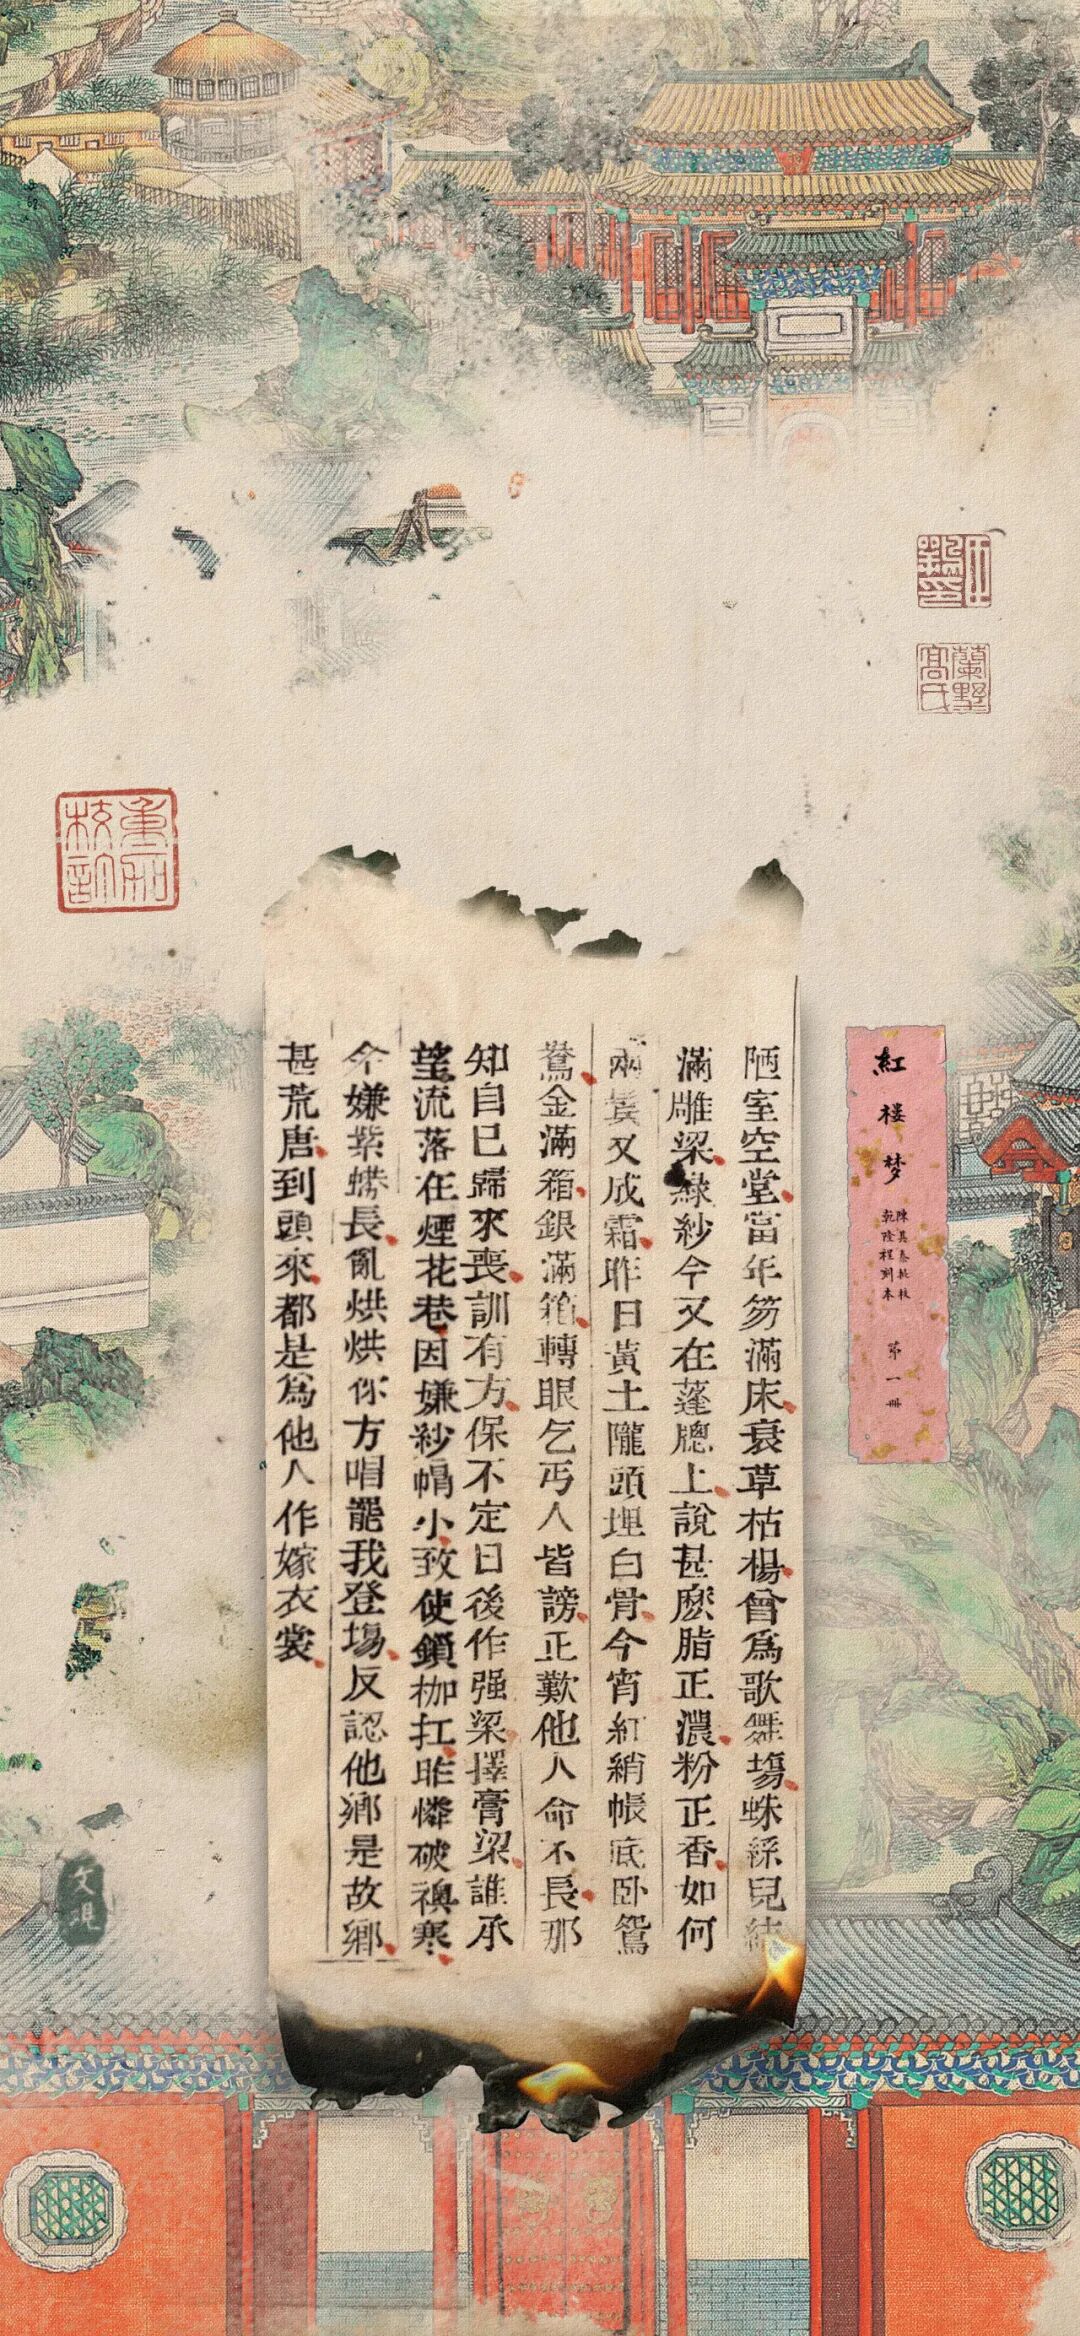 蘭墅
高氏
紅楼梦
陳其泰批校
乾隆程刻本
第一冊
陋室空堂當年笏滿床衰草枯楊曾爲歌舞塲蛛絲兒結
滿雕梁綠紗今又在蓬牎上說甚麽脂正濃粉正香如何
兩鬢又成霜昨日黃土隴頭埋白骨今宵紅綃帳底卧鴛
鴦金滿箱銀滿箱轉眼乞丐人皆謗正歎他人命不長那
知自已歸來喪訓有方保不定日後作强梁擇膏粱誰承
望流落在煙花巷因嫌紗帽小致使鎖枷扛昨憐破襖寒
今嫌紫蟒長亂烘烘你方唱罷我登塲反認他鄉是故鄉
甚荒唐到頭來都是爲他人作嫁衣裳